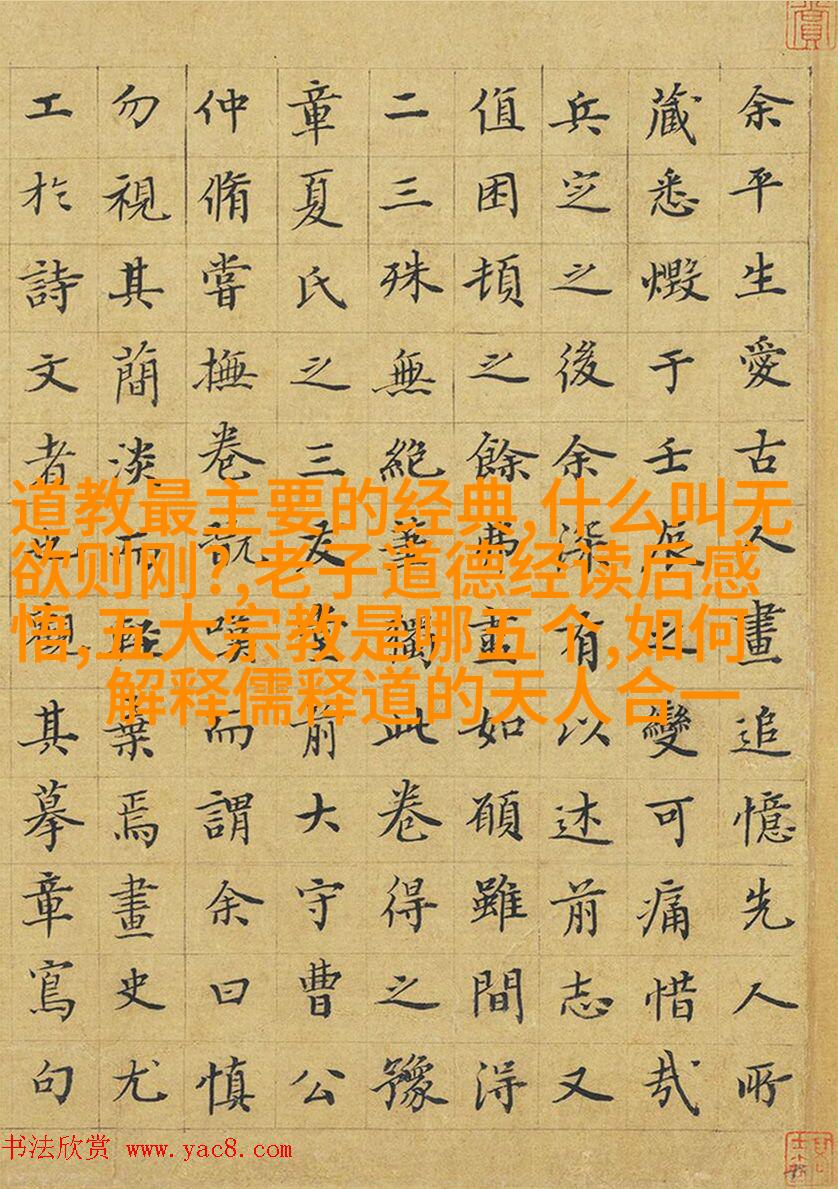 余平生愛古人畫追憶先人所
藏悉燬于壬辰之變可痛惜哉
兵定之後余深有以述前志又
值困頓之餘弗畫如願雖間得
二三殊無絕筆獨此卷得之豫
章夏氏之三友堂前大守曹公
仲脩嘗撫卷玩嘆而謂余曰慎
勿視其簡淡而輕棄焉畫史尤
工於詩文者也觀其摹章寫句
道教最主要的经典,什么叫无
欲则刚?,老子道德经读后感
悟,五大宗教是哪五个,如何
解释儒释道的天人合一
书法欣赏 www.yac8.com